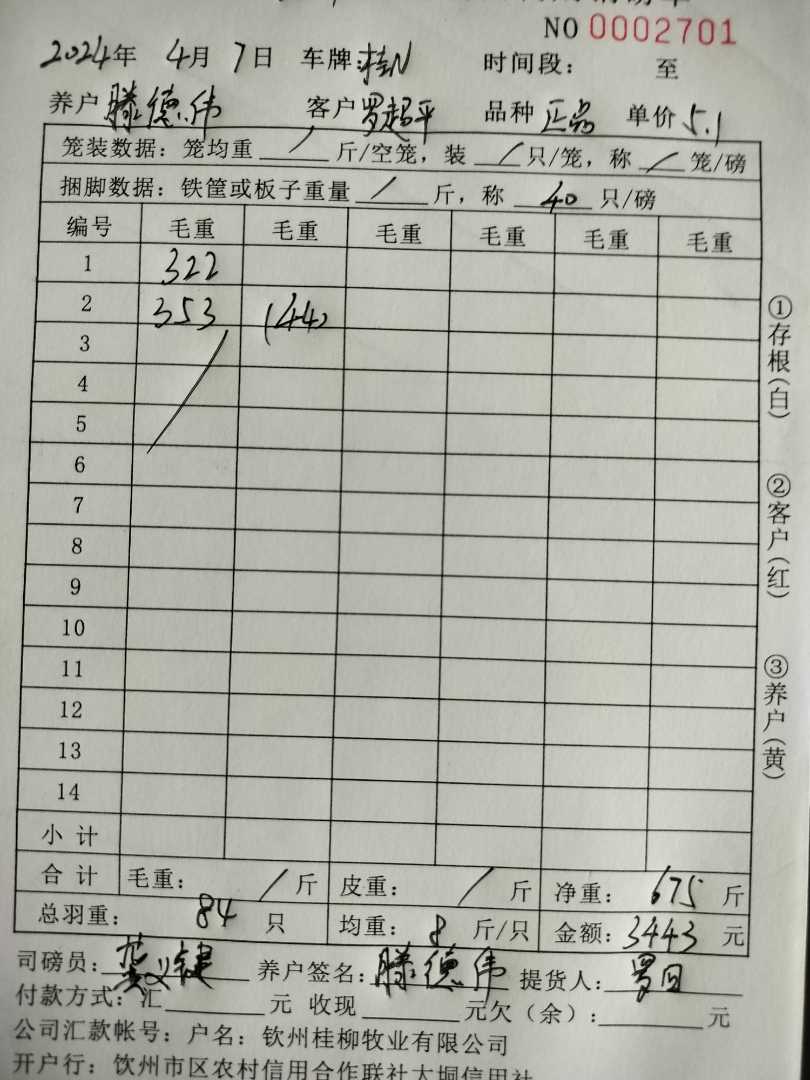 NO 0002701
2024年 4月 7日 车牌:桂N 时间段: 至
养户 滕德伟 客户 罗超平 品种 正品 单价 5.1
笼装数据: 笼均重 / 斤/空笼, 装 / 只/笼, 称 / 笼/磅
捆脚数据: 铁筐或板子重量 / 斤, 称 40 只/磅
编号 毛重 毛重 毛重 毛重 毛重 毛重
1 322
2 353 (44)
3
4
5
6
7
8
9
10
11
12
13
14
小计
合计 毛重: / 斤 皮重: / 斤 净重: 675 斤
总羽重: 84 只 均重: 8 斤/只 金额: 3443 元
司磅员: 键 养户签名: 滕德伟 提货人: 罗
付款方式: 汇 元 收现 元欠(余): 元
公司汇款帐号: 户名: 钦州桂柳牧业有限公司
开户行: 钦州市区农村信用合作联社大垌信用社
①存根(白)
②客户(红)
③养户(黄)